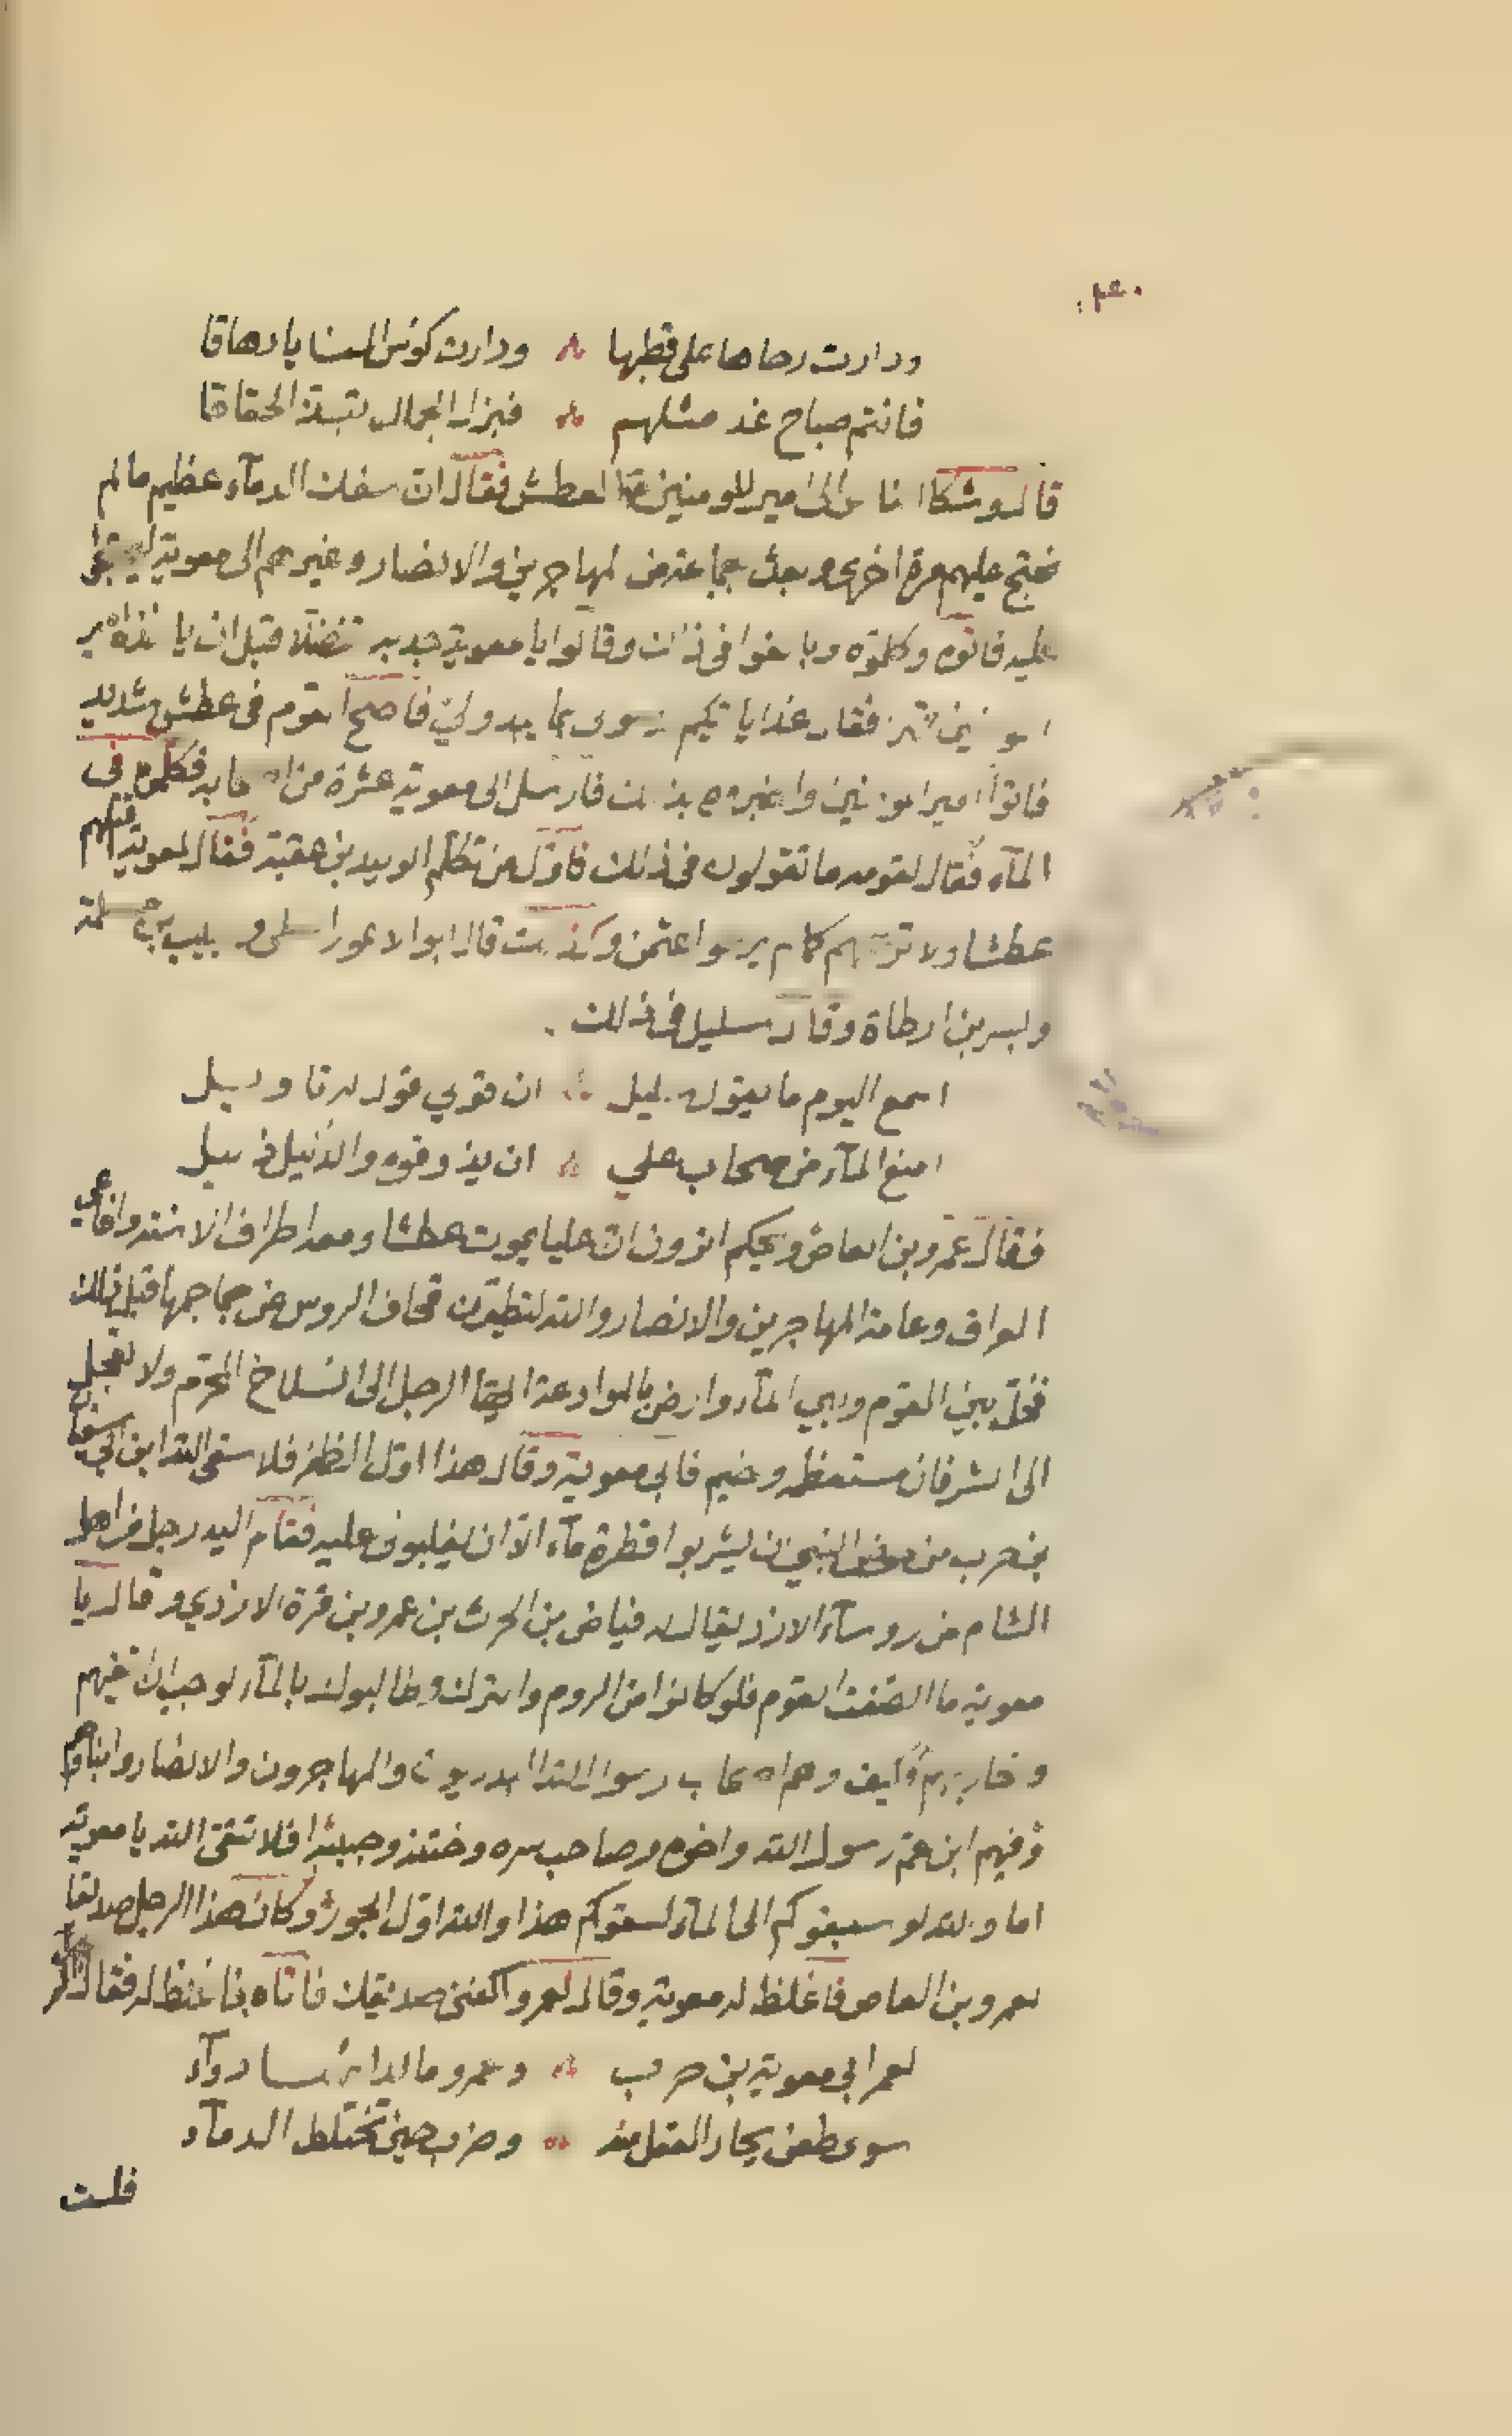 ودارت رحاها على قطبها ودارت كوس المنايا دهاقا
فانتم صباح غد مثلهم فبزل الجمال تبتذ الحقاقا
قال وشكا الناس الى امير المومنين العطش فقال ان سفك الدمآء عظيم ما لم
نحتج عليهم مرة اخرى وبعث جماعة من المهاجرين والانصار وغيرهم الى معوية
عليه فاتوه وكلموه وبالغوا في ذلك وقالوا يا معوية جد به تفضلا قبل ان ياخذه
فقال غدا ياتيكم رسولي بما يبدو لي فاصبح القوم في عطش شديد
فاتوا امير المومنين واخبروه بذلك فارسل الى معوية عشرة من اصحابه فكلموه في
المآء فقال لقومه ما تقولون في ذلك فاول من تكلم الوليد بن عقبة فقال لمعوية اقتلهم
عطشا ولا ترحمهم كما لم يرحموا عثمن وكذلك قال ابو الاعور السلمي وحبيب بن مسلمة
وبسر بن ارطاة وقال سليل في ذلك
اسمع اليوم ما يقول سليل ان قولي قول له تاويل
امنع المآء من صحاب علي ان يذوقوه والذليل ذليل
فقال عمرو بن العاص ويحكم اترون ان عليا يموت عطشا ومعه اطراف الاسنة وافاعي
العراق وعامة المهاجرين والانصار والله لتطيرن قحاف الروس عن جماجمها قبل ذلك
فخل بين القوم وبين المآء وارض بالموادعة الرجل الى انسلاخ المحرم ولا تعجل
الى الشر فان مستمطره وخيم فابى معوية وقال هذا اول الظفر فلا سقى الله ابن ابي سفيان
بن حرب من حوض النبي ان يشربوا قطرة مآء الا ان يغلبون عليه فقام اليه رجل من اهل
الشام من روسآء الازد يقال له فياض بن الحرث بن عمرو بن قرة الازدي وقال يا
معوية ما انصفت القوم فلو كانوا من الروم والترك وطالبوك بالمآء لوجب ان تسقيهم
وتحاربهم فكيف وهم اصحاب رسول الله البدريون والمهاجرون والانصار وابناوهم
وفيهم ابن عم رسول الله واخوه وصاحب سره وختنه وحبيبه افلا تتقي الله يا معوية
اما والله لو سبقوكم الى المآء لسقوكم هذا والله اول الجور وكان هذا الرجل صديقا
لعمرو بن العاص فاغلظ له معوية وقال لعمرو اكفني صديقك فاتاه فاغلظ له فقال
لعمر ابي معوية بن حرب وعمرو ما لدائهما دوآء
سوى طعن يحار العقل منه وضرب حين تختلط الدمآء
فلست